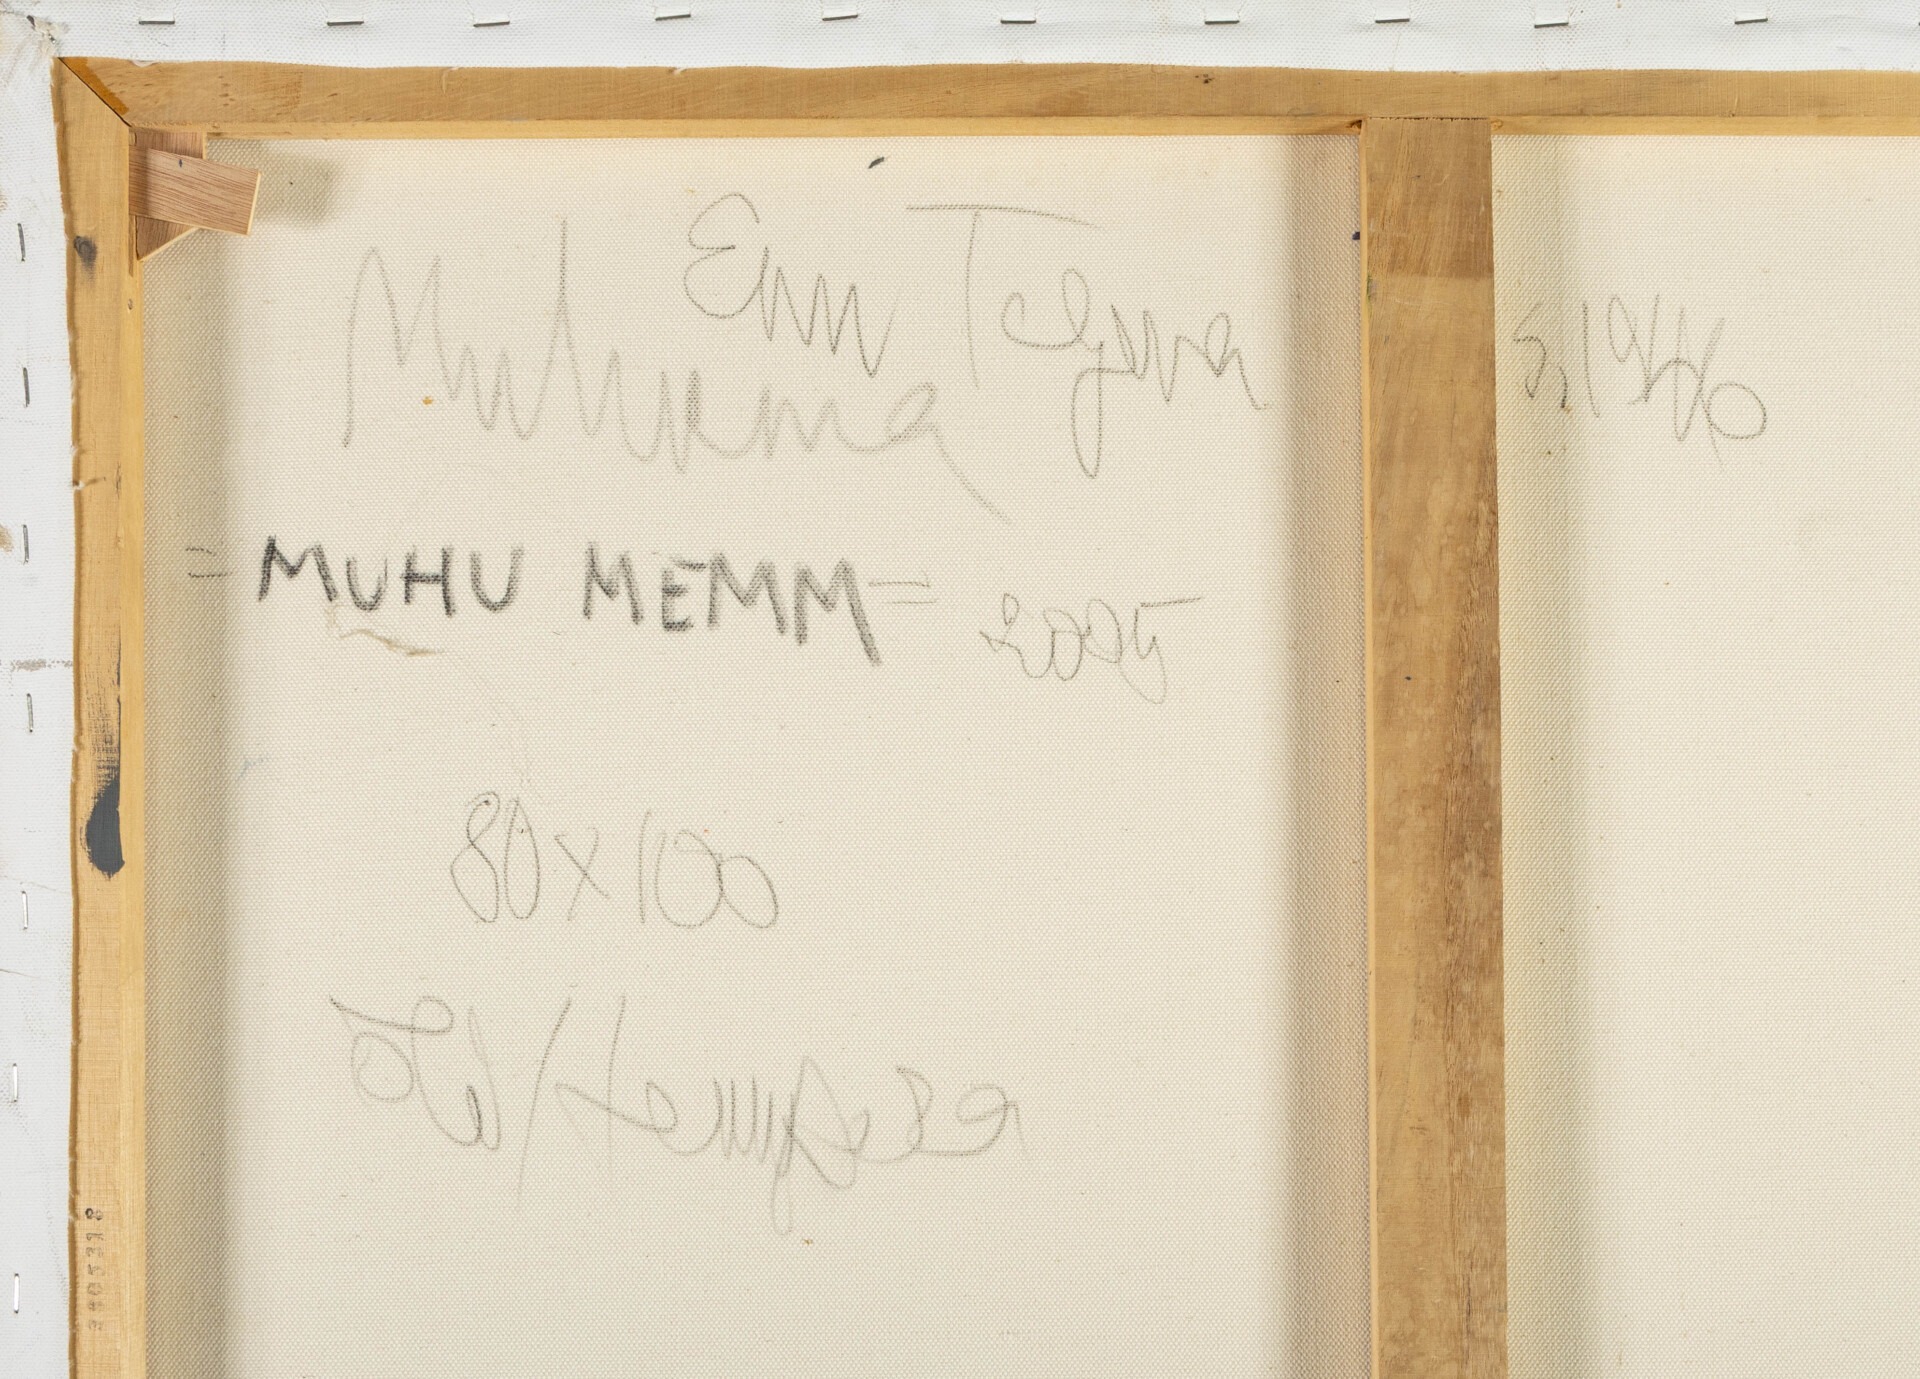 Enn Tegova s, 1946
Muhuma
= MUHU MEMM = 2005
80 x 100
Õli/tempera